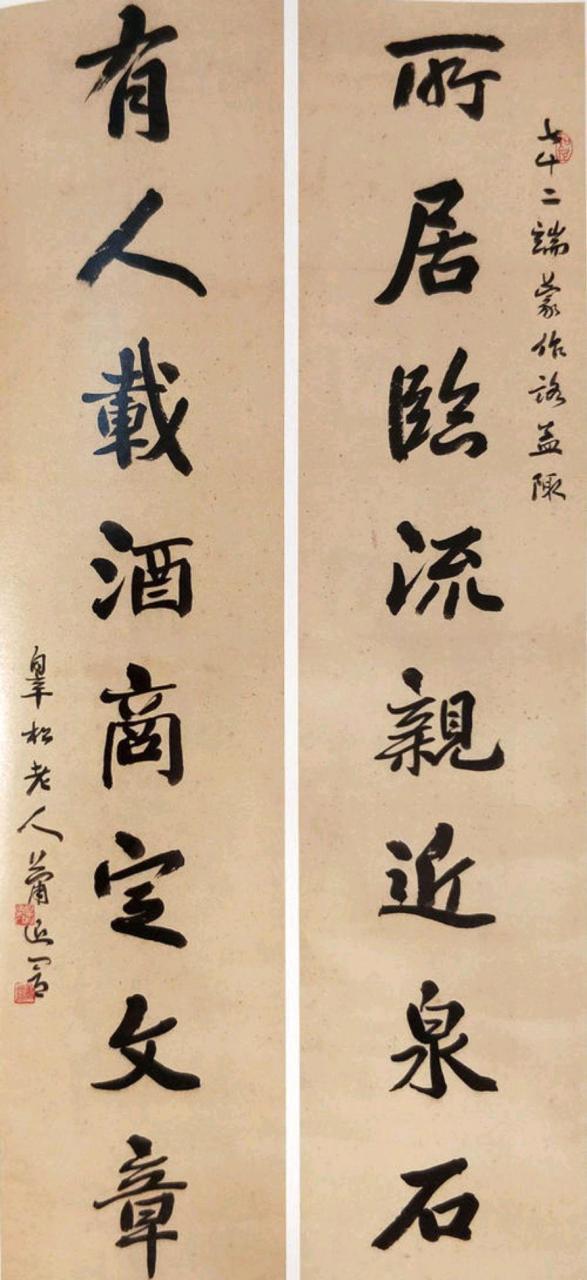 七十二端蒙作詻孟陬
所居臨流親近泉石
有人載酒商定文章
皋松老人蕭退闇